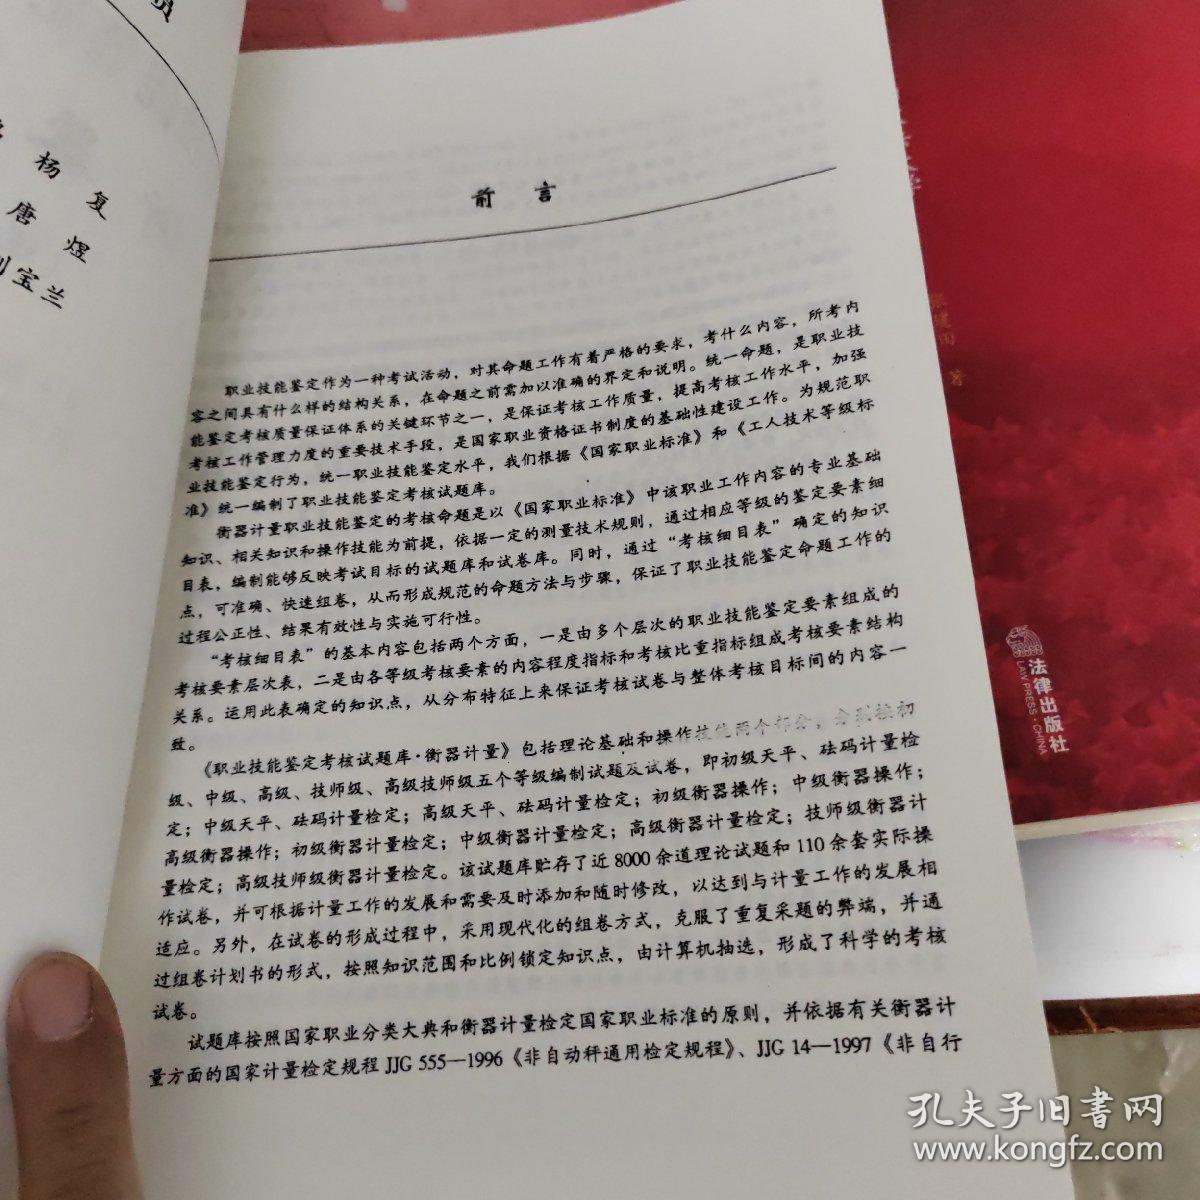 员
杨复
唐煜
宝兰
前言
职业技能鉴定作为一种考试活动，对其命题工作有着严格的要求，考什么内容，所考内
容之间具有什么样的结构关系，在命题之前需加以准确的界定和说明。统一命题，是职业技
能鉴定考核质量保证体系的关键环节之一，是保证考核工作质量，提高考核工作水平，加强
考核工作管理力度的重要技术手段，是国家职业资格证书制度的基础性建设工作。为规范职
业技能鉴定行为，统一职业技能鉴定水平，我们根据《国家职业标准》和《工人技术等级标
准》统一编制了职业技能鉴定考核试题库。
衡器计量职业技能鉴定的考核命题是以《国家职业标准》中该职业工作内容的专业基础
知识、相关知识和操作技能为前提，依据一定的测量技术规则，通过相应等级的鉴定要素细
目表，编制能够反映考试目标的试题库和试卷库。同时，通过“考核细目表”确定的知识
点，可准确、快速组卷，从而形成规范的命题方法与步骤，保证了职业技能鉴定命题工作的
过程公正性、结果有效性与实施可行性。
“考核细目表”的基本内容包括两个方面，一是由多个层次的职业技能鉴定要素组成的
考核要素层次表，二是由各等级考核要素的内容程度指标和考核比重指标组成考核要素结构
关系。运用此表确定的知识点，从分布特征上来保证考核试卷与整体考核目标间的内容一
致。
《职业技能鉴定考核试题库·衡器计量》包括理论基础和操作技能两个部分，分别按初
级、中级、高级、技师级、高级技师级五个等级编制试题及试卷，即初级天平、砝码计量检
定；中级天平、砝码计量检定；高级天平、砝码计量检定；初级衡器操作；中级衡器操作；
高级衡器操作；初级衡器计量检定；中级衡器计量检定；高级衡器计量检定；技师级衡器计
量检定；高级技师级衡器计量检定。该试题库贮存了近8000余道理论试题和110余套实际操
作试卷，并可根据计量工作的发展和需要及时添加和随时修改，以达到与计量工作的发展相
适应。另外，在试卷的形成过程中，采用现代化的组卷方式，克服了重复采题的弊端，并通
过组卷计划书的形式，按照知识范围和比例锁定知识点，由计算机抽选，形成了科学的考核
试卷。
试题库按照国家职业分类大典和衡器计量检定国家职业标准的原则，并依据有关衡器计
量方面的国家计量检定规程JJG 555—1996《非自动秤通用检定规程》、JJG 14—1997《非自行
著
法律出版社
LAW PRESS·CHINA
孔夫子旧书网
www.kongfz.com